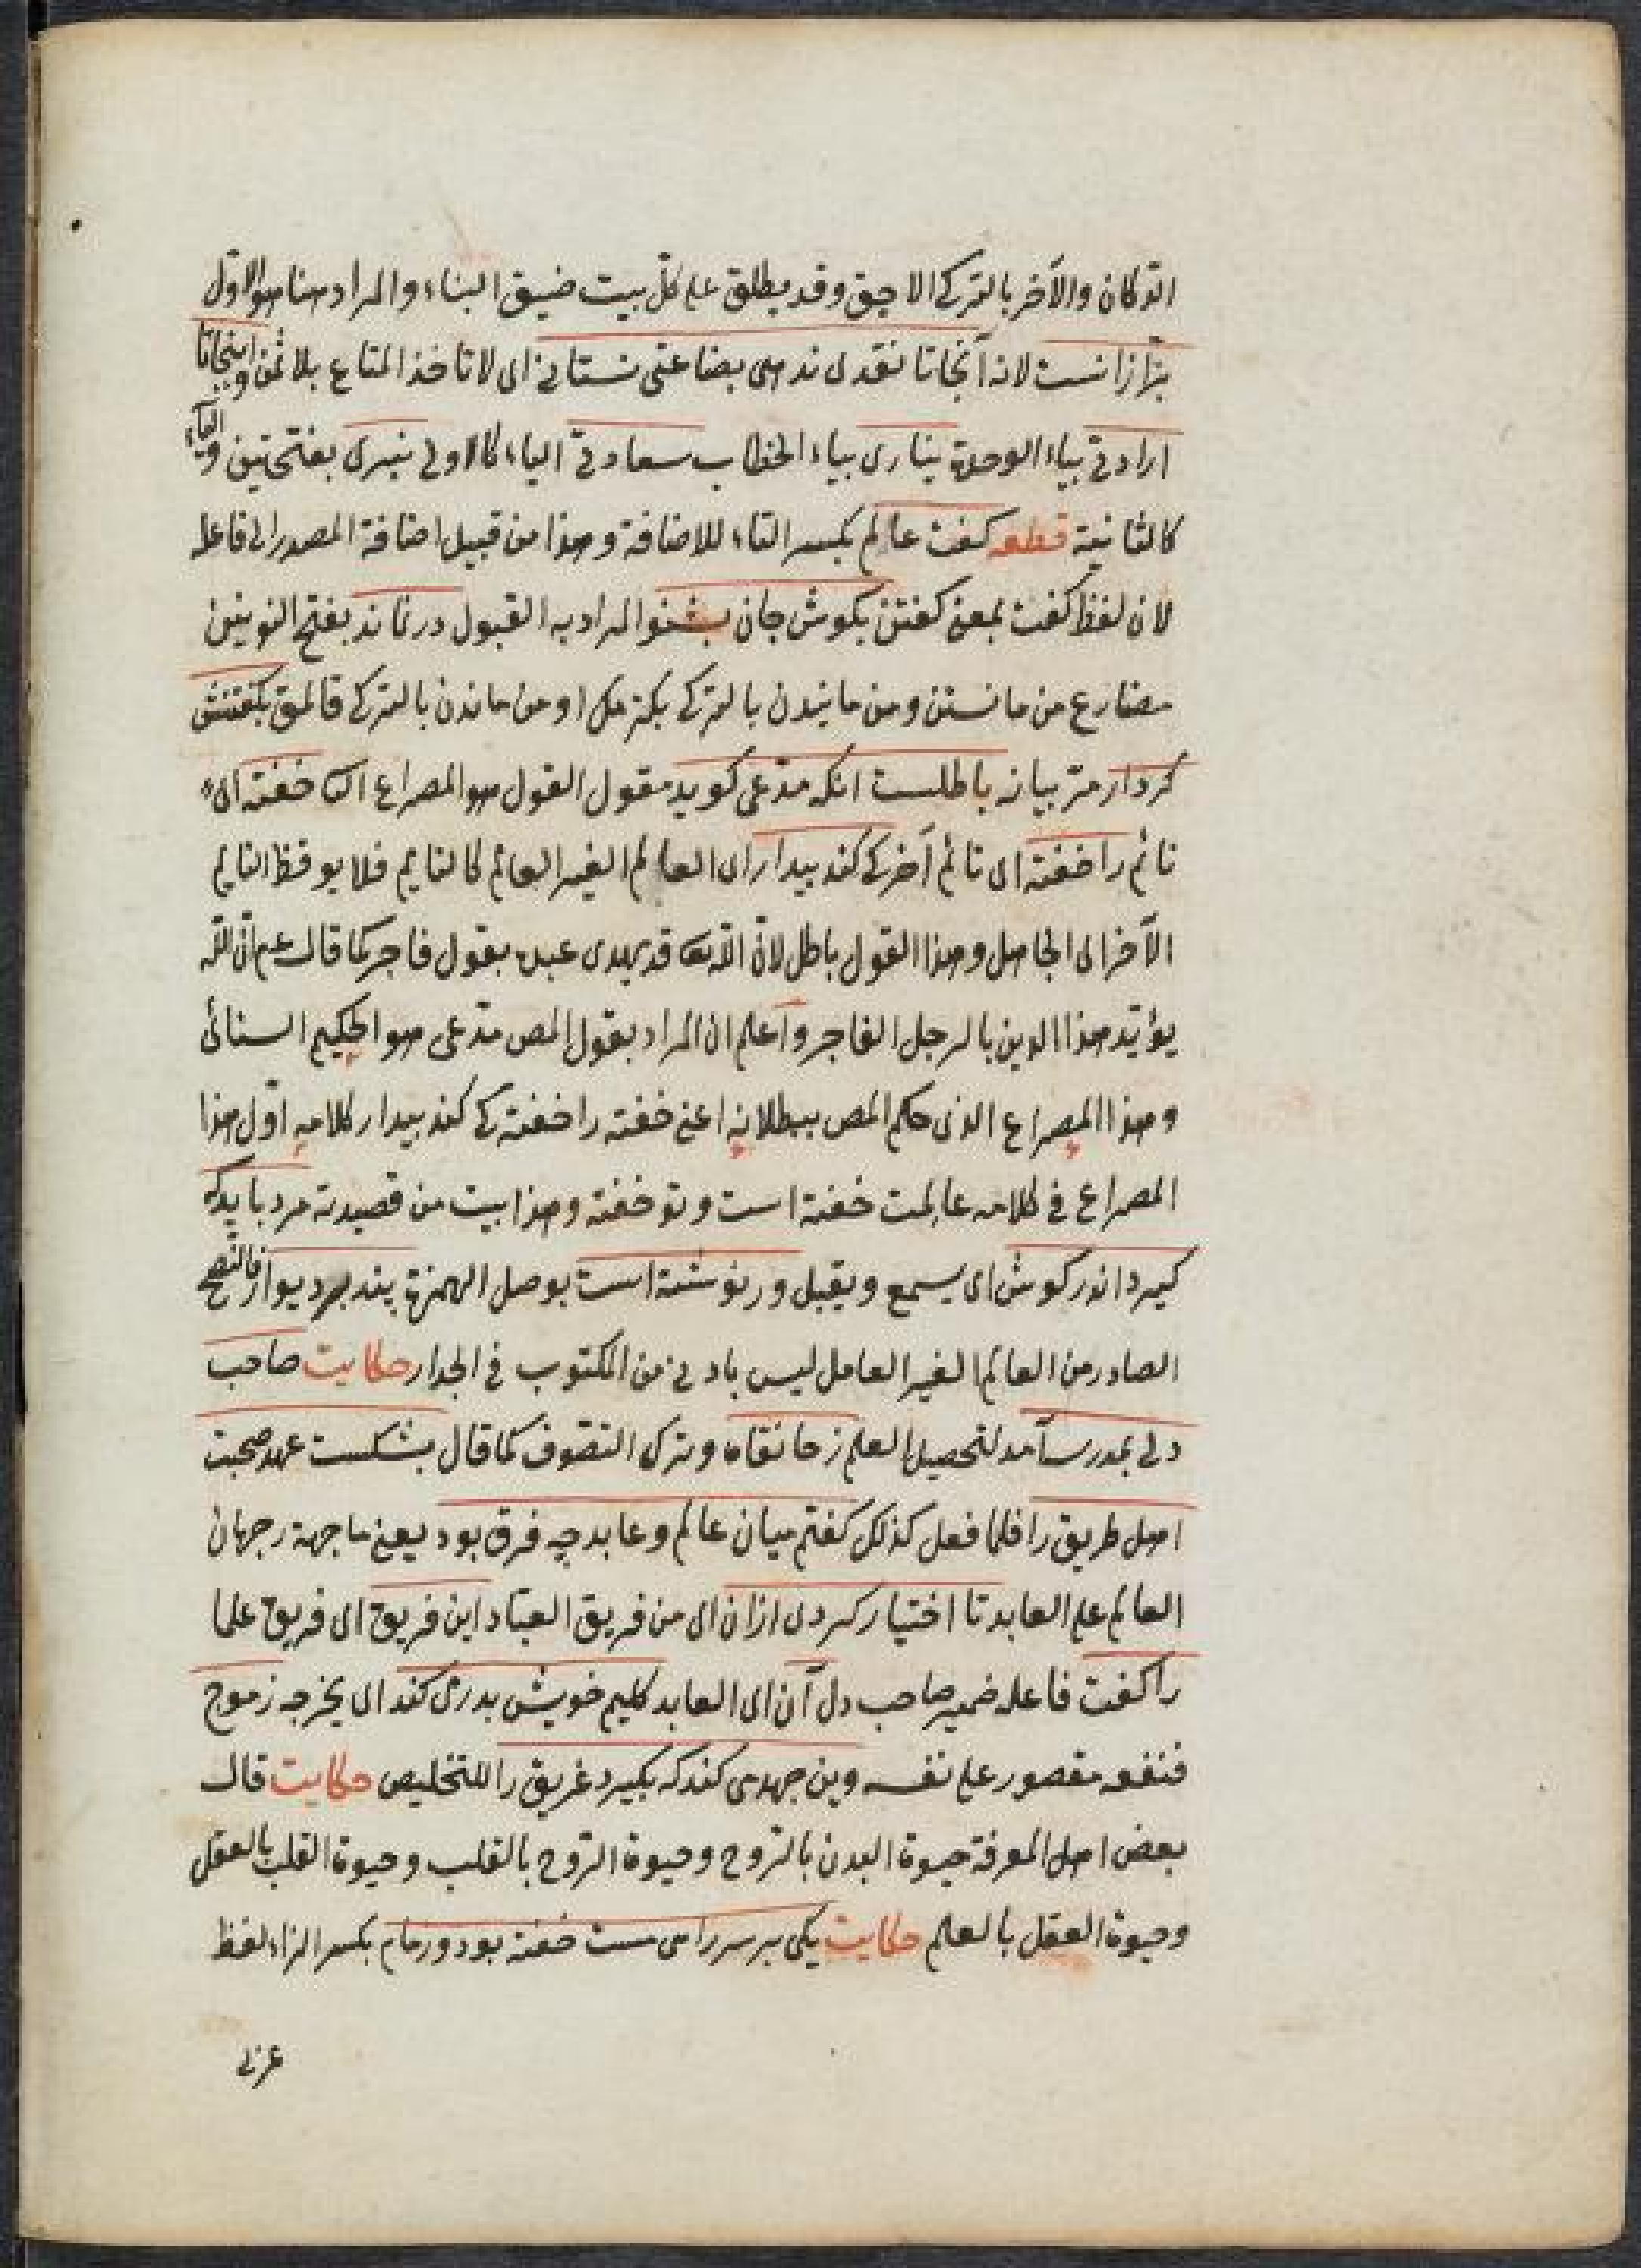 الدّكان والآخر بالتركى الاجيق وقد يطلق على كلّ بيت ضيق البناء والمراد هنا هو الاوّل
بزّازانست لانه آنجاتا نقدى ندهى بضاعتى نستانى اى لا تاخذ المتاع بلا ثمن واينجاتا
ارادتى بياء الوحدة نيارى بياء الخطاب سعادتى الياء كالاولى نبرى بفتحتين والياء
كالثانية قطعه كفت عالم بكسر التاء للاضافة وهذا من قبيل اضافة المصدر الى فاعله
لان لفظ كفت بمعنى كفتن بكوش جان بشنو المراد به القبول ورنماند بفتح النونين
مضارع من مانستن ومن مانيدن بالتركى بكزمك او من ماندن بالتركى قالمق بكفتنش
كردار مرّ بيانه باطلست انكه مدّعى كويد مقول القول هو المصراع الثا خفته اى
نائم را خفته اى نائم آخر كى كند بيدار اى العالم الغير العالم كالنايم فلا يوقظ النايم
الآخر اى الجاهل وهذا القول باطل لانّ اللّه تعا قد يهدى عبده بقول فاجر كما قال عم انّ اللّه
يؤيّد هذا الدين بالرجل الفاجر واعلم ان المراد بقول المص مدّعى هو الحكيم السنائى
وهذا المصراع الذى حكم المص ببطلانه اعنى خفته را خفته كى كند بيدار كلامه اوّل هذا
المصراع فى كلامه عالمت خفته است وتو خفته وهذا بيت من قصيدته مرد بايد كه
كيرد اندر كوش اى يسمع ويقبل ورنوشته است بوصل الهمزة پند بر ديوار فالنصح
الصادر من العالم الغير العامل ليس بادنى من المكتوب فى الجدار حكايت صاحب
دلى بمدرسه آمد لتحصيل العلم ز خانقاه وترك التصوف كما قال بشكست عهد صحبت
اهل طريق را فلما فعل كذلك كفتم ميان عالم وعابد چه فرق بود يعنى ما جهة رجهان
العالم على العابد تا اختيار كردى ازان اى من فريق العبّاد اين فريق اى فريق علما
را كفت فاعله ضمير صاحب دل آن اى العابد كليم خويش بدر مى كند اى يخرجه ز موج
فنفعه مقصور على نفسه وين جهد مى كند كه بكيرد غريق را للتخليص حكايت قال
بعض اهل المعرفة حيوة البدن بالرّوح وحيوة الرّوح بالقلب وحيوة القلب بالعقل
وحيوة العقل بالعلم حكايت يكى بر سر راهى مست خفته بود وزمام بكسر الزاء لفظ
عربى